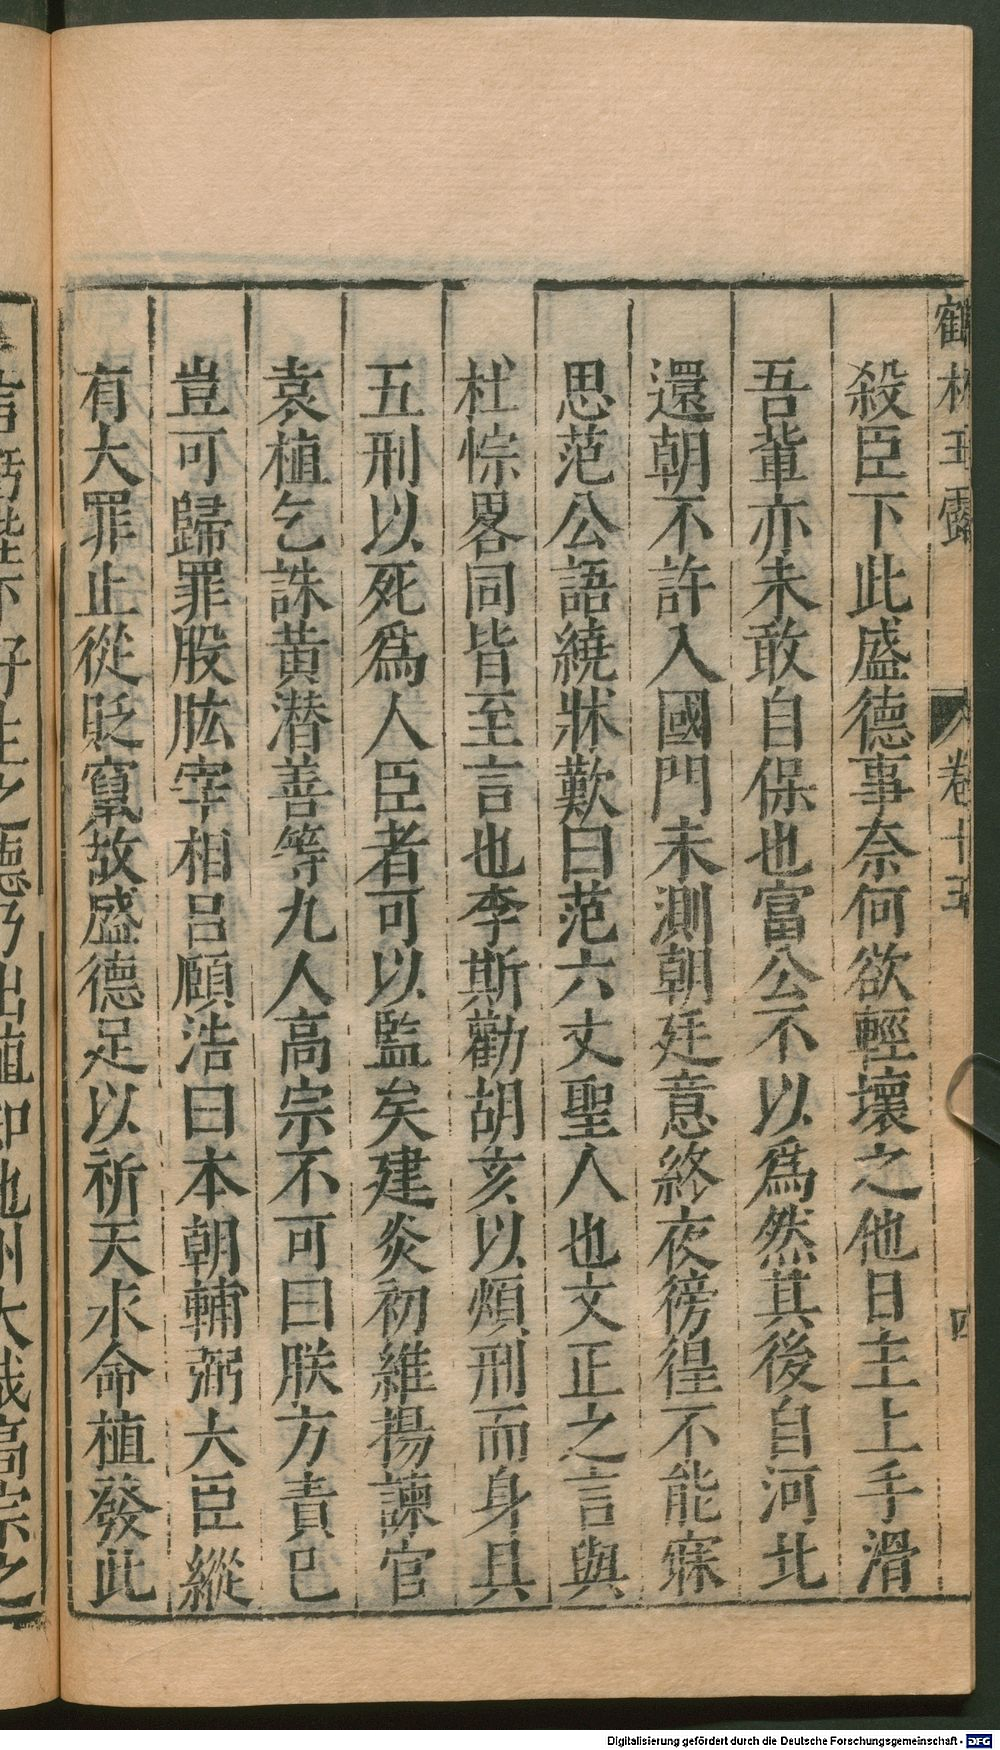 鶴林玉露 卷十五 四
殺臣下此盛德事奈何欲輕壞之他日主上手滑
吾軰亦未敢自保也富公不以爲然其後自河北
還朝不許入國門未測朝廷意終夜徬徨不能寐
思范公語繞牀歎曰范六丈聖人也文正之言與
杜悰畧同皆至言也李斯勸胡亥以煩刑而身具
五刑以死爲人臣者可以監矣建炎初維揚諫官
袁植乞誅黄潜善等九人高宗不可曰朕方責巳
豈可歸罪股肱宰相吕頤浩曰本朝輔弼大臣縱
有大罪止從貶竄故盛德足以祈天永命植發此
言虧陛下好生之德乃出植知池州大哉高宗之
Digitalisierung gefördert durch die Deutsche Forschungsgemeinschaft - DFG